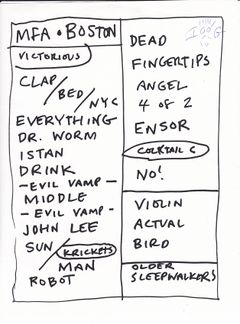 MFA • BOSTON
VICTORIOUS
CLAP /
BED /
NYC
EVERYTHING
DR. WORM
ISTAN
DRINK
- EVIL VAMP -
MIDDLE
- EVIL VAMP -
JOHN LEE
SUN / KRICKETS
MAN
ROBOT
DEAD
FINGERTIPS
ANGEL
4 OF 2
ENSOR
COCKTAIL C
NO!
VIOLIN
ACTUAL
BIRD
OLDER
SLEEPWALKERS